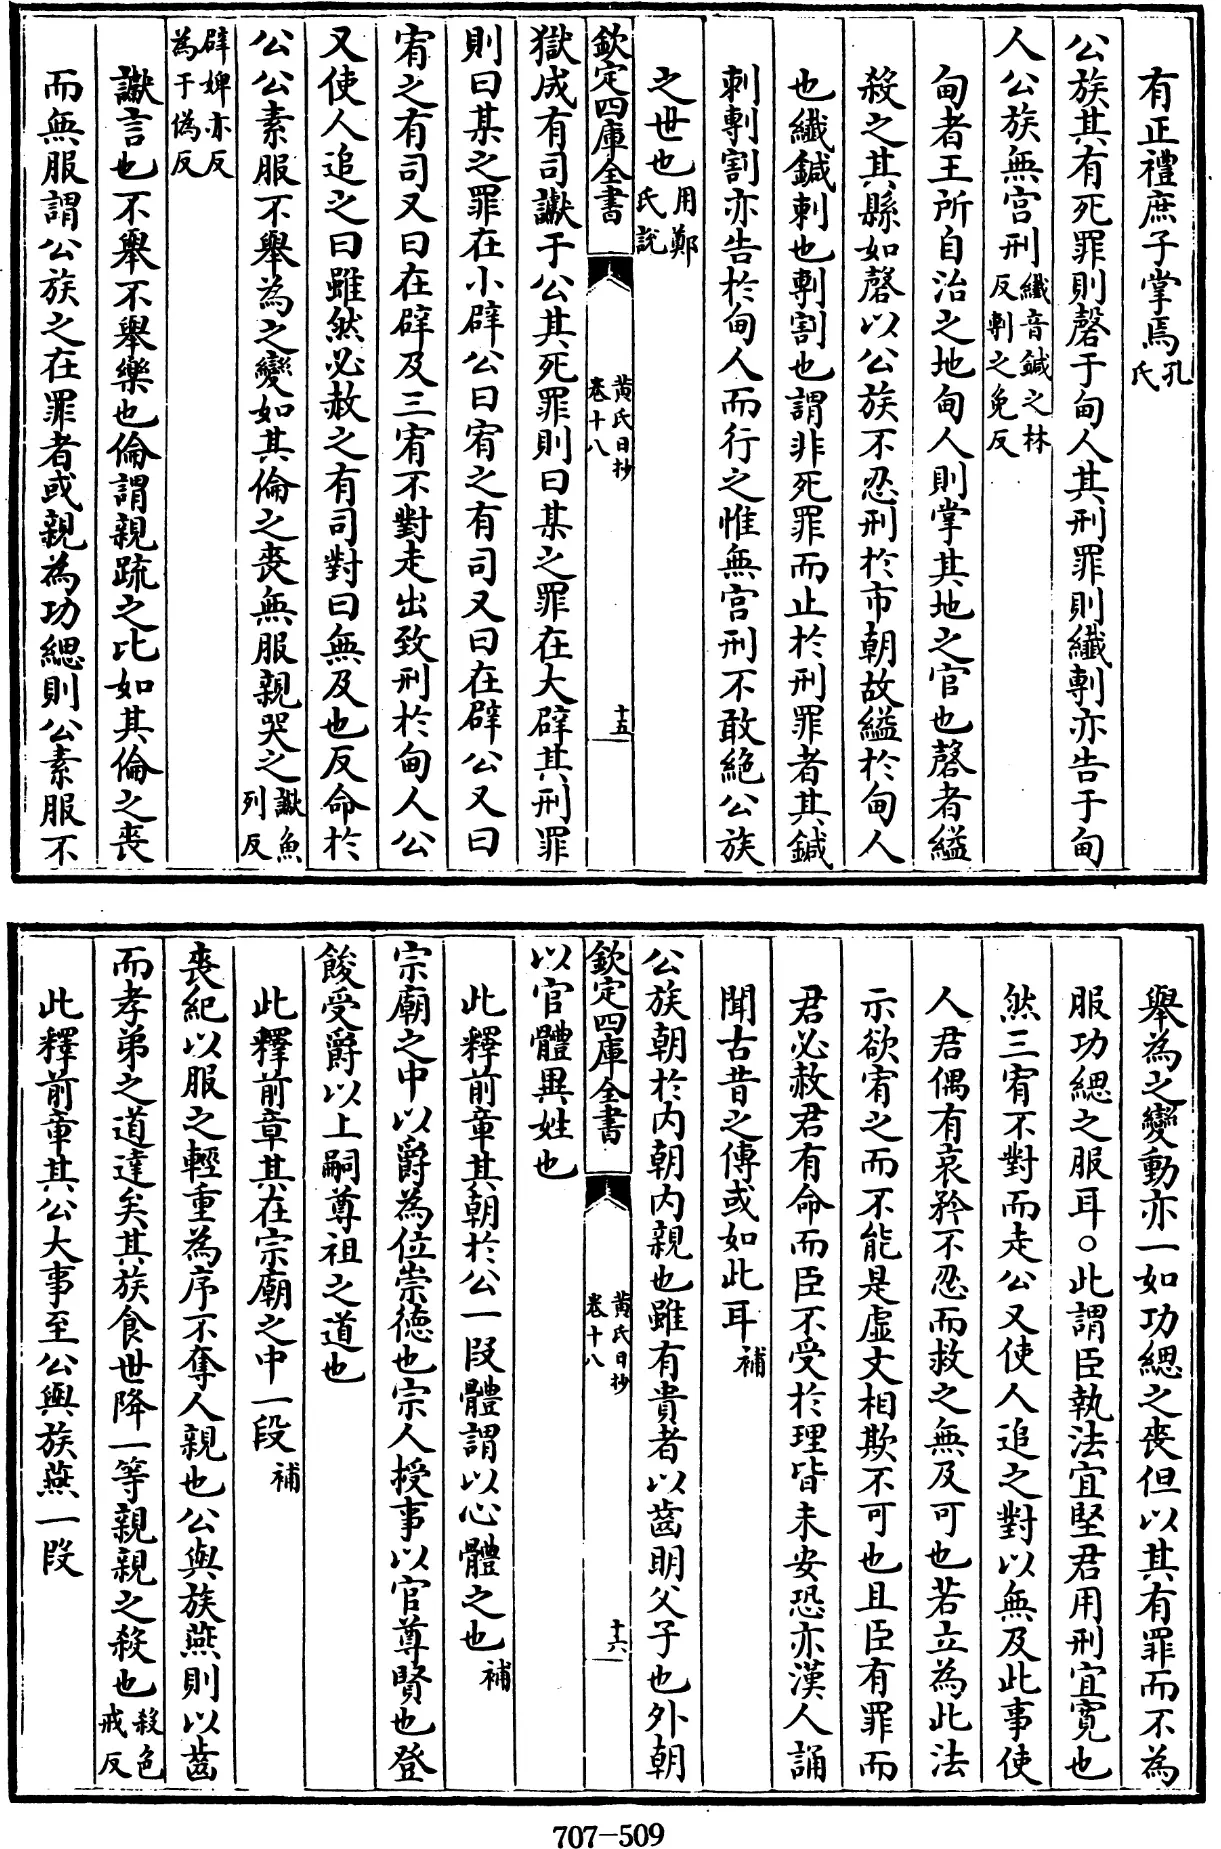 有正禮庶子掌焉孔氏
公族其有死罪則磬于甸人其刑罪則纖剸亦告于甸
人公族無宮刑纖音鍼之林反剸之免反
甸者王所自治之地甸人則掌其地之官也磬者縊
殺之其縣如磬以公族不忍刑於市朝故縊於甸人
也纖鍼刺也剸割也謂非死罪而止於刑罪者其鍼
刺剸割亦告於甸人而行之惟無宮刑不敢絶公族
之世也用鄭氏説
欽定四庫全書
黄氏日抄
卷十八
十五
獄成有司讞于公其死罪則曰某之罪在大辟其刑罪
則曰某之罪在小辟公曰宥之有司又曰在辟公又曰
宥之有司又曰在辟及三宥不對走出致刑於甸人公
又使人追之曰雖然必赦之有司對曰無及也反命於
公公素服不舉為之變如其倫之喪無服親哭之讞魚列反
辟婢亦反為于偽反
讞言也不舉不舉樂也倫謂親疏之比如其倫之喪
而無服謂公族之在罪者或親為功緦則公素服不
舉為之變動亦一如功緦之喪但以其有罪而不為
服功緦之服耳○此謂臣執法宜堅君用刑宜寛也
然三宥不對而走公又使人追之對以無及此事使
人君偶有哀矜不忍而救之無及可也若立為此法
示欲宥之而不能是虚文相欺不可也且臣有罪而
君必赦君有命而臣不受於理皆未安恐亦漢人誦
聞古昔之傳或如此耳補
公族朝於内朝内親也雖有貴者以齒明父子也外朝
欽定四庫全書
黄氏日抄
卷十八
十六
以官體異姓也
此釋前章其朝於公一段體謂以心體之也補
宗廟之中以爵為位崇德也宗人授事以官尊賢也登
餕受爵以上嗣尊祖之道也
此釋前章其在宗廟之中一段補
喪紀以服之輕重為序不奪人親也公與族燕則以齒
而孝弟之道達矣其族食世降一等親親之殺也殺色戒反
此釋前章其公大事至公與族燕一段
707-509